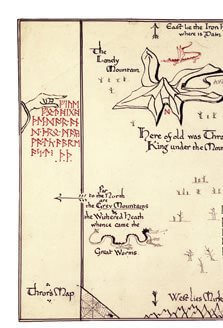 East lie the Iron H
where is Dain
The
Lonely
Mountain
N
Here of old was Thro
King under the Moun
Far
to the North
are
the Grey Mountains
& the Withered Heath
whence came the
Great Worms
Thror's Map
West lies Mirk